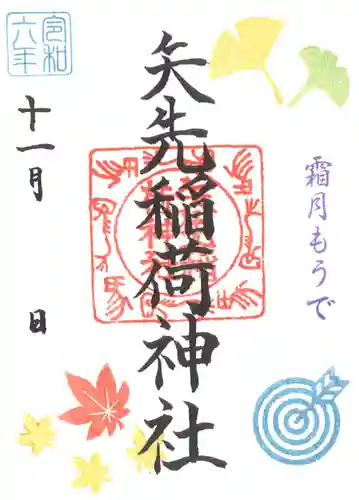 令和
六年
十一月
日
矢先稲荷神社
霜月もうで